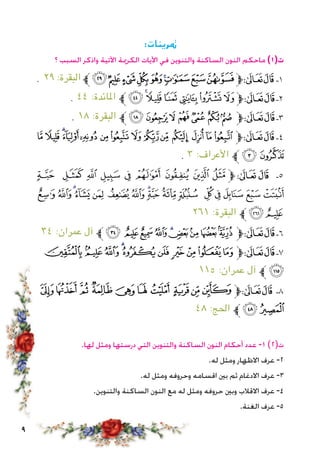 تمرينات:
ت(١) ماحكم النون الساكنة والتنوين في الآيات الكريمة الآتية واذكر السبب ؟
١- قَالَ تَعَالَىٰ: ﴿ فَسَوَّىٰهُنَّ سَبْعَ سَمَٰوَٰتٍ وَهُوَ بِكُلِّ شَىْءٍ عَلِيمٌ ﴿٢٩﴾ ﴾ البقرة: ٢٩ .
٢- قَالَ تَعَالَىٰ: ﴿ وَلَا تَشْتَرُوا۟ بِـَٔايَٰتِى ثَمَنًا قَلِيلًا ﴿٤٤﴾ ﴾ المائدة: ٤٤ .
٣- قَالَ تَعَالَىٰ: ﴿ صُمٌّۢ بُكْمٌ عُمْىٌ فَهُمْ لَا يَرْجِعُونَ ﴿١٨﴾ ﴾ البقرة: ١٨ .
٤- قَالَ تَعَالَىٰ: ﴿ ٱتَّبِعُوا۟ مَآ أُنزِلَ إِلَيْكُم مِّن رَّبِّكُمْ وَلَا تَتَّبِعُوا۟ مِن دُونِهِۦٓ أَوْلِيَآءَ قَلِيلًا مَّا
تَذَكَّرُونَ ﴿٣﴾ ﴾ الأعراف: ٣ .
٥- قَالَ تَعَالَىٰ: ﴿ مَّثَلُ ٱلَّذِينَ يُنفِقُونَ أَمْوَٰلَهُمْ فِى سَبِيلِ ٱللَّهِ كَمَثَلِ حَبَّةٍ
أَنۢبَتَتْ سَبْعَ سَنَابِلَ فِى كُلِّ سُنۢبُلَةٍ مِّا۟ئَةُ حَبَّةٍ وَٱللَّهُ يُضَٰعِفُ لِمَن يَشَآءُ وَٱللَّهُ وَٰسِعٌ
عَلِيمٌ ﴿٢٦١﴾ ﴾ البقرة: ٢٦١
٦- قَالَ تَعَالَىٰ: ﴿ ذُرِّيَّةًۢ بَعْضُهَا مِنۢ بَعْضٍ وَٱللَّهُ سَمِيعٌ عَلِيمٌ ﴿٣٤﴾ ﴾ آل عمران: ٣٤
٧- قَالَ تَعَالَىٰ: ﴿ وَمَا يَفْعَلُوا۟ مِنْ خَيْرٍ فَلَن يُكْفَرُوهُ وَٱللَّهُ عَلِيمٌۢ بِٱلْمُتَّقِينَ
﴿١١٥﴾ ﴾ آل عمران: ١١٥
٨- قَالَ تَعَالَىٰ: ﴿ وَكَأَيِّن مِّن قَرْيَةٍ أَمْلَيْتُ لَهَا وَهِىَ ظَالِمَةٌ ثُمَّ أَخَذْتُهَا وَإِلَىَّ
ٱلْمَصِيرُ ﴿٤٨﴾ ﴾ الحج: ٤٨
ت(٢) ١- عدد أحكام النون الساكنة والتنوين التي درستها ومثل لها.
٢- عرف الاظهار ومثل له.
٣- عرف الادغام ثم بين اقسامه وحروفه ومثل له.
٤- عرف الاقلاب وبين حروفه ومثل له مع النون الساكنة والتنوين.
٥- عرف الغنة.
٩